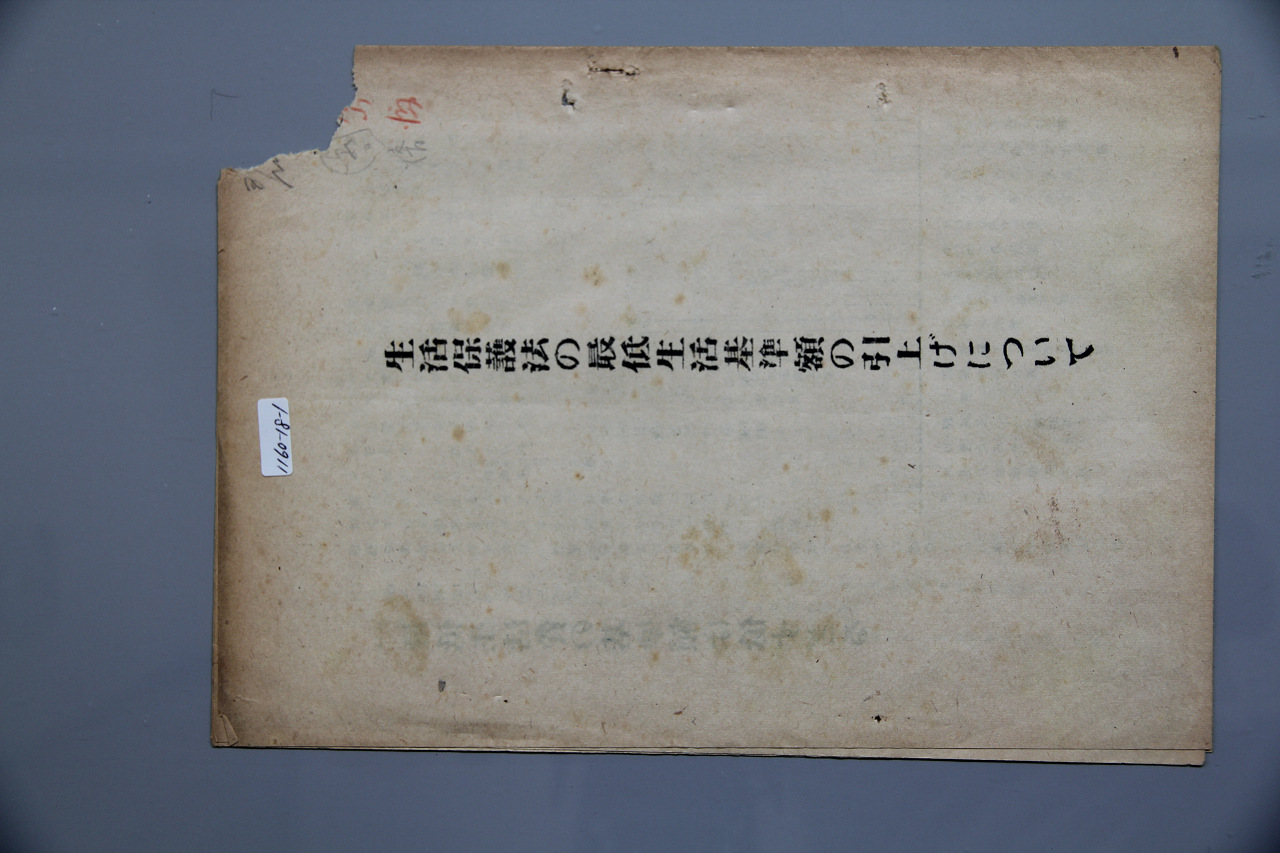 生活保護法の最低生活基準額の引上げについて
1160-18-1